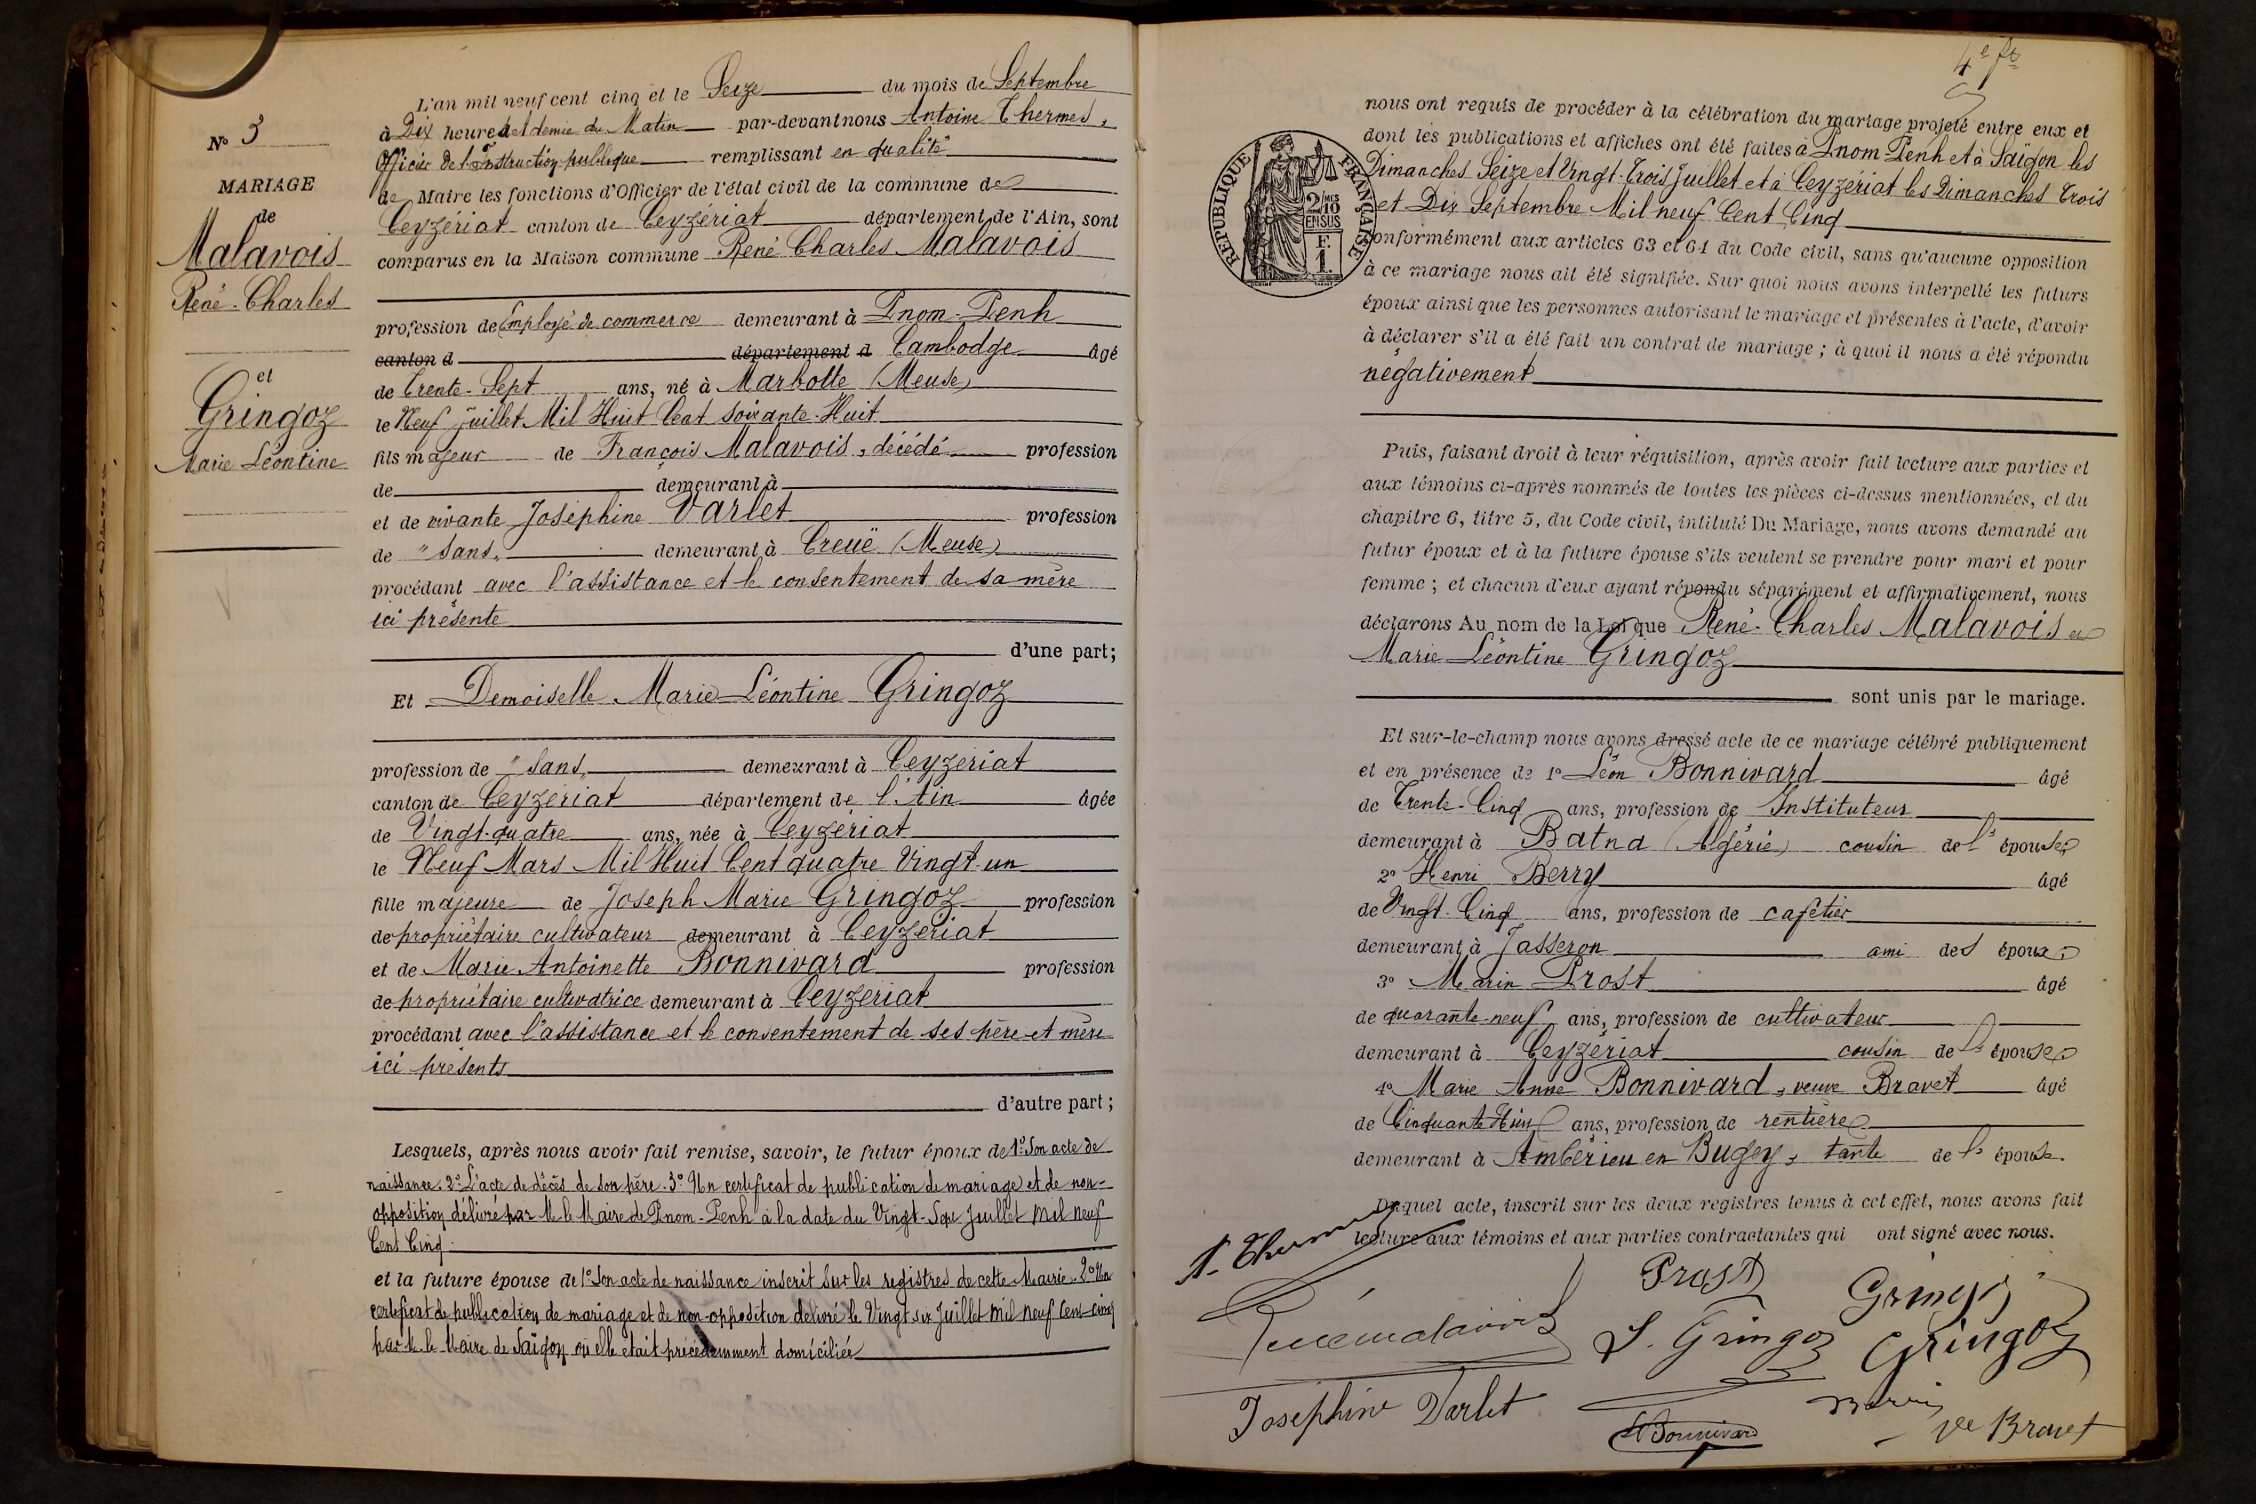 No 3
MARIAGE
de
Malavois
René-Charles
et
Gringoz
Marie Léontine
L'an mil neuf cent cinq et le Seize du mois de Septembre
à Dix heures et demie du Matin par-devant nous Antoine Thermes,
Officier de l'Instruction publique remplissant en qualité
de Maire les fonctions d'Officier de l'état civil de la commune de
Ceyzériat canton de Ceyzériat département de l'Ain, sont
comparus en la Maison commune René Charles Malavois
profession de Employé de commerce demeurant à Pnom-Penh
canton d département d Cambodge âgé
de Trente-Sept ans, né à Marbotte (Meuse)
le Neuf Juillet Mil Huit Cent Soixante-Huit
fils majeur de François Malavois, décédé profession
de demeurant à
et de vivante Joséphine Varlet profession
de "Sans" demeurant à Creuë (Meuse)
procédant avec l'assistance et le consentement de sa mère
ici présente
d'une part;
Et Demoiselle Marie Léontine Gringoz
profession de "Sans" demeurant à Ceyzériat
canton de Ceyzériat département de l'Ain âgée
de Vingt-quatre ans, née à Ceyzériat
le Neuf Mars Mil Huit Cent quatre Vingt-un
fille majeure de Joseph Marie Gringoz profession
de propriétaire cultivateur demeurant à Ceyzériat
et de Marie Antoinette Bonnivard profession
de propriétaire cultivatrice demeurant à Ceyzériat
procédant avec l'assistance et le consentement de ses père et mère
ici présents
d'autre part;
Lesquels, après nous avoir fait remise, savoir, le futur époux de 1º Son acte de
naissance. 2º L'acte de décès de son père. 3º Un certificat de publication de mariage et de non-
opposition délivré par M. le Maire de Pnom-Penh à la date du Vingt-Sept Juillet Mil neuf
Cent Cinq.
et la future épouse de 1º Son acte de naissance inscrit sur les registres de cette Mairie. 2º Un
certificat de publication de mariage et de non-opposition délivré le Vingt six Juillet mil neuf cent-cinq
par M. le Maire de Saïgon où elle était précédemment domiciliée
4e fo
REPUBLIQUE FRANÇAISE
2/10 MES
EN SUS
F.
1.
nous ont requis de procéder à la célébration du mariage projeté entre eux et
dont les publications et affiches ont été faites à Pnom-Penh et à Saïgon les
Dimanches Seize et Vingt-Trois Juillet et à Ceyzériat les Dimanches Trois
et Dix Septembre Mil neuf Cent Cinq
conformément aux articles 63 et 64 du Code civil, sans qu'aucune opposition
à ce mariage nous ait été signifiée. Sur quoi nous avons interpellé les futurs
époux ainsi que les personnes autorisant le mariage et présentes à l'acte, d'avoir
à déclarer s'il a été fait un contrat de mariage; à quoi il nous a été répondu
négativement
Puis, faisant droit à leur réquisition, après avoir fait lecture aux parties et
aux témoins ci-après nommés de toutes les pièces ci-dessus mentionnées, et du
chapitre 6, titre 5, du Code civil, intitulé Du Mariage, nous avons demandé au
futur époux et à la future épouse s'ils veulent se prendre pour mari et pour
femme; et chacun d'eux ayant répondu séparément et affirmativement, nous
déclarons Au nom de la Loi que René-Charles Malavois et
Marie Léontine Gringoz
sont unis par le mariage.
Et sur-le-champ nous avons dressé acte de ce mariage célébré publiquement
et en présence de 1º Léon Bonnivard âgé
de Trente-Cinq ans, profession de Instituteur
demeurant à Batna (Algérie) cousin de l'épouse;
2º Henri Berry âgé
de Vingt-Cinq ans, profession de cafetier
demeurant à Jasseron ami des époux;
3º Marin Prost âgé
de quarante-neuf ans, profession de cultivateur
demeurant à Ceyzériat cousin de l'épouse;
4º Marie Anne Bonnivard, veuve Bravet âgé
de Cinquante Huit ans, profession de rentière
demeurant à Ambérieu en Bugey, tante de l'épouse.
Duquel acte, inscrit sur les deux registres tenus à cet effet, nous avons fait
lecture aux témoins et aux parties contractantes qui ont signé avec nous.
A. Thermes
Prost
Gringoz
René Malavois
L. Gringoz
Gringoz
Joséphine Varlet
L Bonnivard
Berry
Ve Bravet